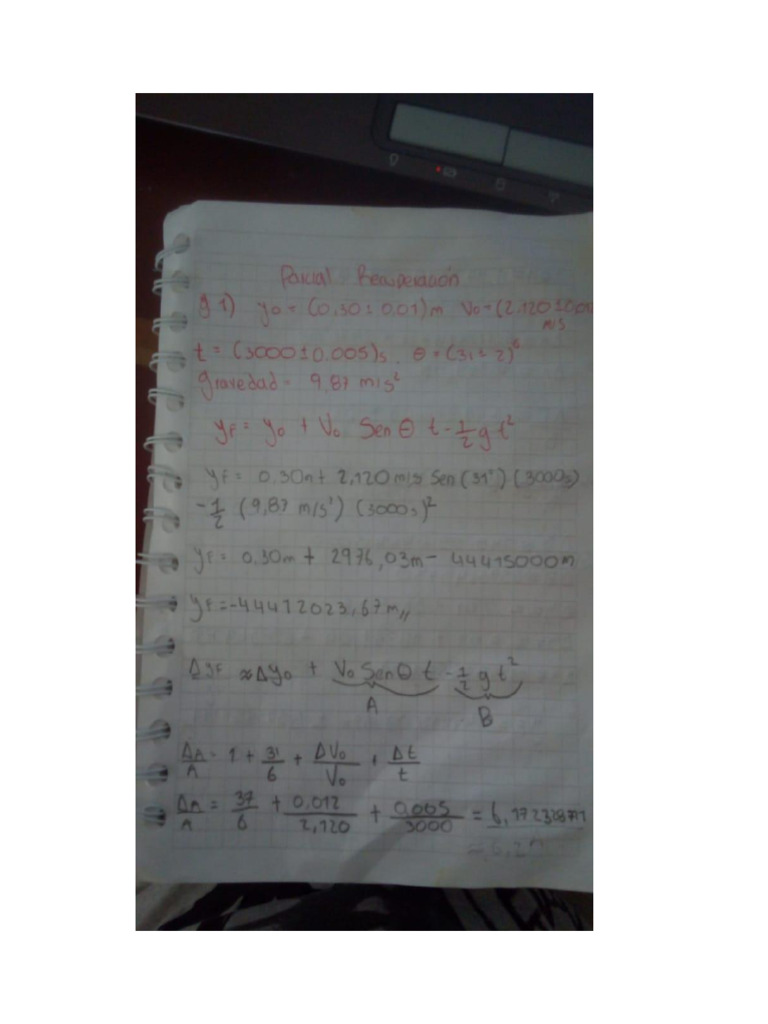 Parcial Recuperación
g 1) y₀ = (0,30 ± 0,01)m V₀ = (2,120 ± 0,01
m/s
t = (3000 ± 0.005)s. θ = (31 ± 2)°
gravedad = 9,87 m/s²
yF = y₀ + V₀ Sen θ t - 1/2 g t²
yF = 0.30m + 2,120 m/s Sen (31°) (3000s)
- 1/2 (9,87 m/s²) (3000s)²
yF = 0.30m + 2976,03m - 44415000m
yF = -44412023,67m,,
ΔyF ≈ Δy₀ + V₀ Sen θ t - 1/2 g t²
A B
ΔA/A = 1 + 31/6 + ΔV₀/V₀ + Δt/t
ΔA/A = 37/6 + 0,012/2,120 + 0,005/3000 = 6,172328771
= 6,2 m